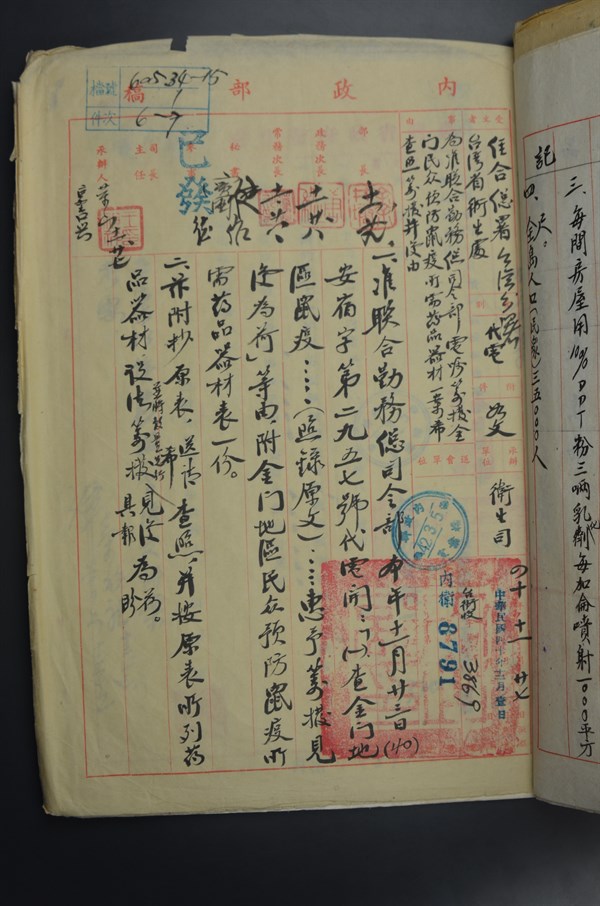 三、每間房屋用10% DDT粉三啢乳劑每加侖噴射一000平方
尺。
四、全島人口(民眾)三五000人
記
內政部稿
檔號
605.34-15
1
件次
6-7
受文者
台灣省衛生處
代電
事由
為准聯合勤務總司令部電請籌撥金
門民眾預防鼠疫所需藥品器材一案希
查照籌撥并復由
附件
如文
承辦單位
衛生司
送會單位
部長
政務次長
常務次長
秘書
司長
主任
承辦人
已發
四十 十一 廿七
中華民國四十年 月壹日
內衛 6791
3869
一、准聯合勤務總司令部 本年十一月廿三日(40)
安宿字第二九五七號代電開:「(一)查金門地
區鼠疫……(照錄原文)……惠予籌撥見
復為荷」等由,附金門地區民眾預防鼠疫所
需藥品器材表一份。
二、茲附抄原表,送請查照,希并按原表所列藥
品器材,設法籌撥見復為荷。
具報